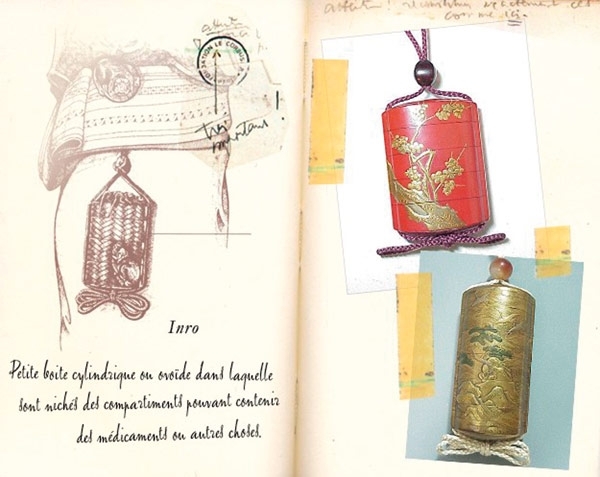 FONDATION LE CORBUSIER
très
important !
Inro
Petite boite cylindrique ou ovoïde dans laquelle
sont nichés des compartiments pouvant contenir
des médicaments ou autres choses.
attention !
exactement
comme ici.